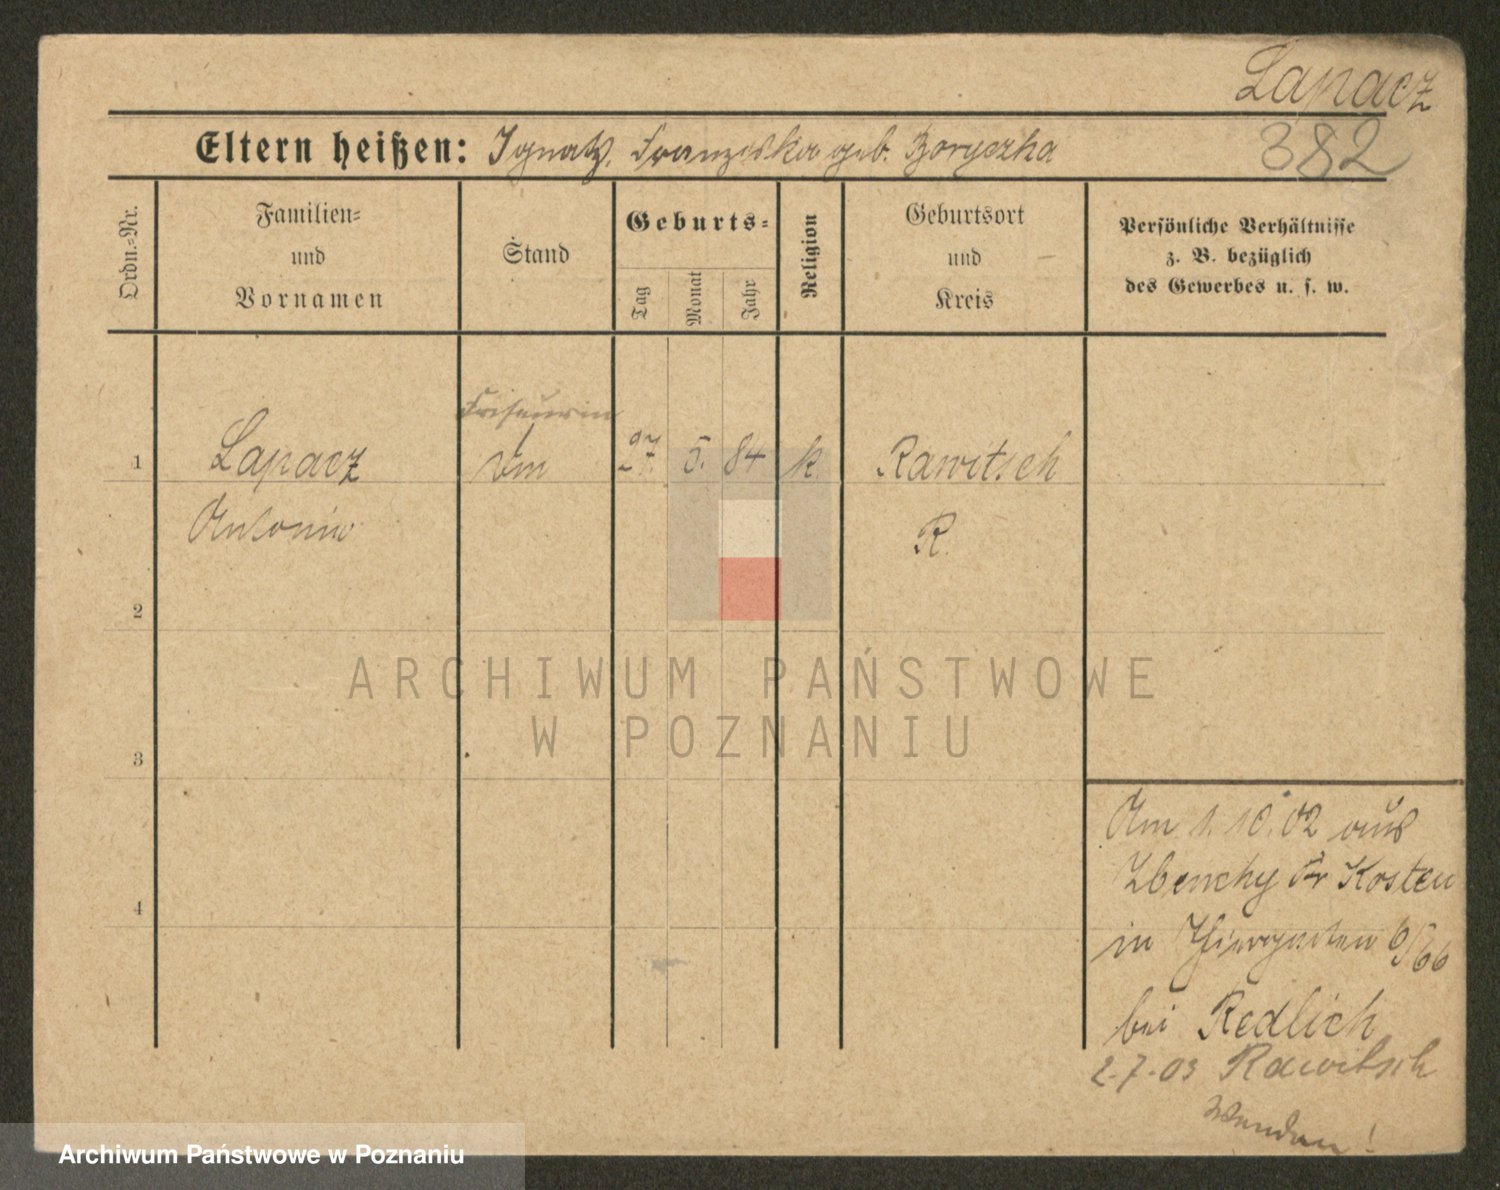 Lapacz
382
Eltern heißen: Ignatz, Franziska geb. Boryczka
Ordn.=Nr.
Familien=
und
Vornamen
Stand
Geburts=
Tag
Monat
Jahr
Religion
Geburtsort
und
Kreis
Persönliche Verhältnisse
z. B. bezüglich
des Gewerbes u. s. w.
Friseurin
1 Lapacz 27. 5. 84 k. Rawitsch
Antonie R.
2
3
4
Am 1.10.02 aus
Zbenchy Kr Kosten
in Thiergarten 6/66
bei Redlich
2.7.03 Rawitsch
Wenden!
ARCHIWUM PAŃSTWOWE
W POZNANIU
Archiwum Państwowe w Poznaniu